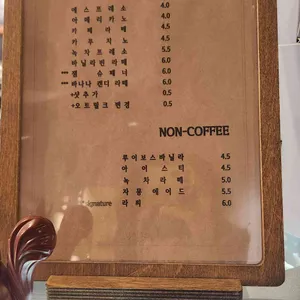 에스프레소 4.0
아메리카노 4.0
카페라떼 4.5
카푸치노 4.5
녹차프레소 5.5
바닐라빈라떼 6.0
*** 썸슈페너 6.0
*** 바나나캔디라떼 6.0
+샷추가 0.5
+오트밀크변경 0.5
NON-COFFEE
루이보스바닐라 4.5
아이스티 4.5
녹차라떼 5.0
자몽에이드 5.5
Signature 라씨 6.0